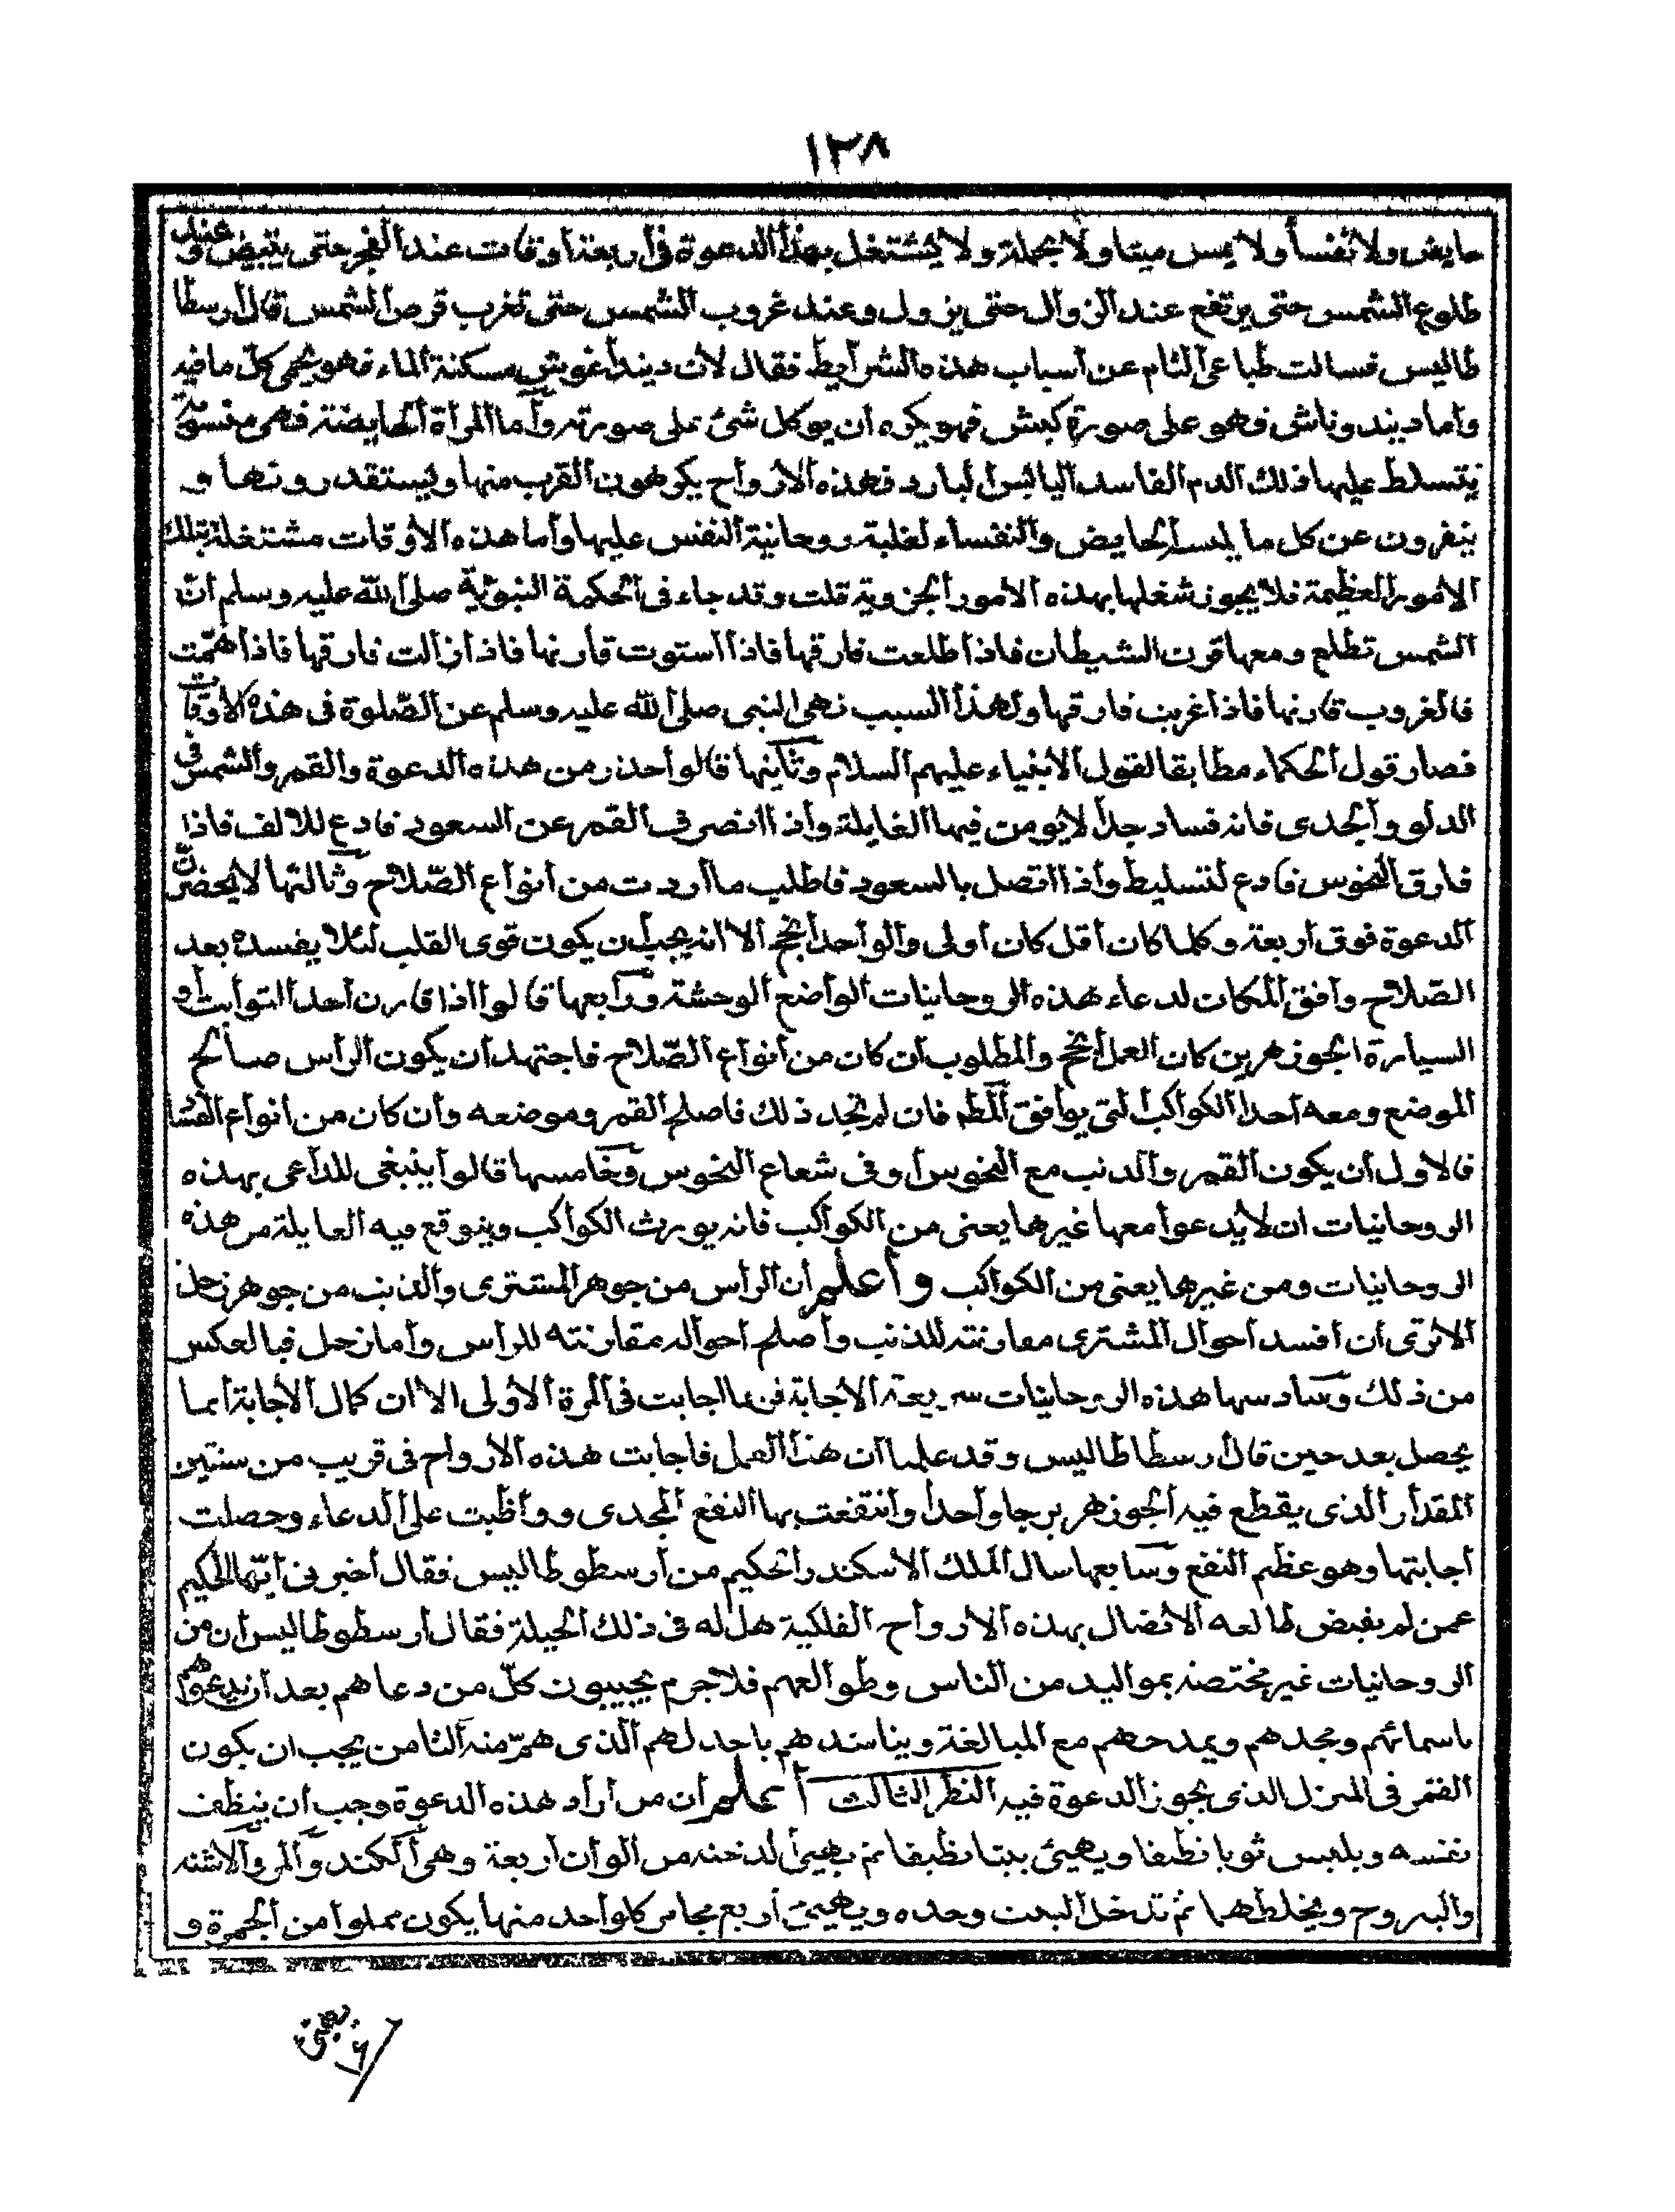 ١٢٨
حايض ولا نفسأ ولا يمس ميتا ولا بجملة ولا يشتغل بهذا الدعوة في أربعة أوقات عند الفجر حتى يتبيض وعند
طلوع الشمس حتى يرتفع عند الزوال حتى يزول وعند غروب الشمس حتى تغرب قرص الشمس قال ارسطا
طاليس فسالت طباعي التام عن أسباب هذه الشرايط فقال لأن ديندأغوش مسكنة الماء فهو يحمى كل ما فيه
وأما ديندوناش فهو على صورة كبش فهو يكره ان يوكل شئ على صورته وأما المرأة الحايضة فهى منسوبة
يتسلط عليها ذلك الدم الفاسد اليابس البارد فهذه الأرواح يكرهون القرب منها ويستقدرونها و
ينفرون عن كل ما يلمس الحايض والنفساء لغلبة روحانية النفس عليها وأما هذه الأوقات مشتغلة بتلك
الأمور العظيمة فلا يجوز شغلها بهذه الأمور الجزوية قلت وقد جاء فى الحكمة النبوية صلى الله عليه وسلم أن
الشمس تطلع ومعها قرن الشيطان فاذا طلعت فارقها فاذا استوت قارنها فاذا زالت فارقها فاذا همت
فالغروب قارنها فاذا غربت فارقها ولهذا السبب نهى النبى صلى الله عليه وسلم عن الصلوة فى هذه الأوقات
فصار قول الحكماء مطابقا لقول الأنبياء عليهم السلام وثانيها قالو أحذر من هذه الدعوة والقمر والشمس في
الدلو والجدى فانه فساد جدا لا يومن فيها الغايلة وأذا انصرف القمر عن السعود فادع للالف فاذا
فارق النحوس فادع لتسليط وأذا اتصل بالسعود فاطلب ما أردت من أنواع الصلاح وثالثها لا يحضرن
الدعوة فوق أربعة وكلما كان أقل كان أولى والواحد أنجح ألا أنه يجب أن يكون قوى القلب لئلا يفسده بعد
الصلاح وأفق المكان لدعاء هذه الروحاينات الواضع الوحشة ورابعها قالوا اذا قارن أحد الثوابت أو
السيارة الجوزهرين كان العمل أنجح والمطلوب أن كان من أنواع الصلاح فاجتهد أن يكون الرأس صالح
الموضع ومعه أحد الكواكب التى يوافق المطم فان لم تجد ذلك فاصلح القمر وموضعه وأن كان من أنواع الفسا
فالأول أن يكون القمر والدنب مع النحوس أو فى شعاع النحوس وخامسها قالوا ينبغى للداعى بهذه
الروحانيات ان لا يدعوا معها غيرها يعنى من الكواكب فانه يورث الكواكب ويتوقع فيه الغايلة من هذه
الروحانيات ومن غيرها يعنى من الكواكب وأعلم أن الرأس من جوهر المشترى والذنب من جوهر زحل
ألا ترى أن أفسد أحوال المشترى مقارنته للذنب وأصلح أحواله مقارنته للرأس وأما زحل فبالعكس
من ذلك وسادسها هذه الروحاينات سريعة الأجابة فربما اجابت فى المرة الأولى الا ان كمال الأجابة أنما
يحصل بعد حين قال أرسطاطاليس وقد علمنا ان هذا العمل فاجابت هذه الأرواح فى قريب من سنتين
المقدار الذى يقطع فيه الجوزهر برجا واحدا وأنتفعت بها النفع المجدى وواظبت على الدعاء وحصلت
أجابتها وهو عظم النفع وسابعها سال الملك الأسكندر الحكيم من أرسطوطاليس فقال أخبرنى أيها الحكيم
عمن لم يقبض طالعه الأتصال بهذه الأرواح الفلكية هل له فى ذلك الحيلة فقال أرسطوطاليس أن من
الروحانيات غير مختصة بمواليد من الناس وطوالعهم فلا جرم يجيبون كل من دعاهم بعد أن يدعوهم
باسمائهم ومجدهم ويمدحهم مع المبالغة ويناشدهم باحد لهم الذى همر منه الثامن يجب ان يكون
القمر فى المنزل الذى يجوز الدعوة فيه النظر الثالث أعلم أن من أراد هذه الدعوة وجب ان ينظف
نفسه ويلبس ثوبا نظيفا ويهيئ بيتا نظيفا ثم يهيئ الدخنه من ألوان أربعة وهى الكندر والمر والاشنه
والبيروح ويخلطها ثم تدخل البيت وحده ويهيئ أربع مجامر كلواحد منها يكون مملوا من الجمرة و